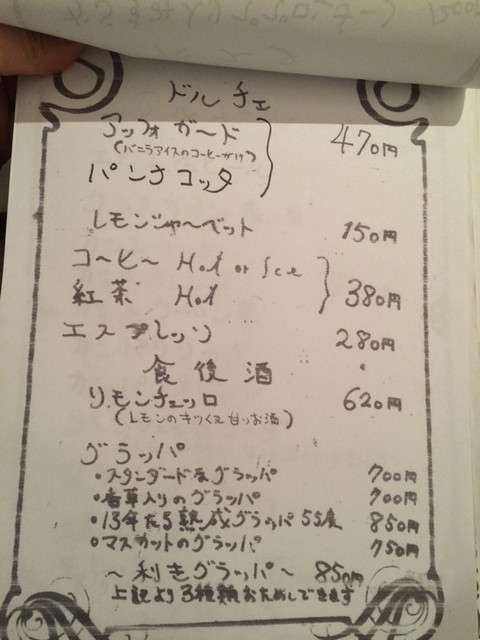 ドルチェ
アッフォガード
(バニラアイスのコーヒーがけ)
パンナコッタ
470円
レモンシャーベット 150円
コーヒー Hot or Ice
紅茶 Hot
380円
エスプレッソ 280円
食後酒
リモンチェッロ 620円
(レモンのキツくて甘いお酒)
グラッパ
・スタンダードなグラッパ 700円
・香草入りのグラッパ 700円
・13年たる熟成グラッパ 55度 850円
・マスカットのグラッパ 750円
～利きグラッパ～ 850円
上記より3種類おためしできます